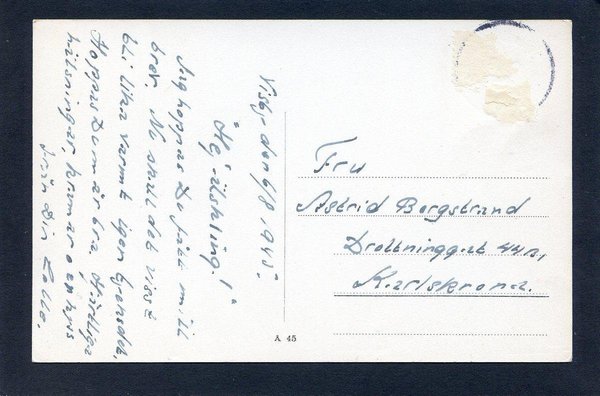 Visby den 6/8 1943.
"Hej älskling!"
Jag hoppas Du fått mitt
brev. Nu skall det visst
bli lika varmt igen
Hoppas Du mår bra. Hjärtliga
hälsningar, kramar och kyss
från Din
Fru
Astrid Borgstrand
Drottninggat 44
Karlskrona.
A 45